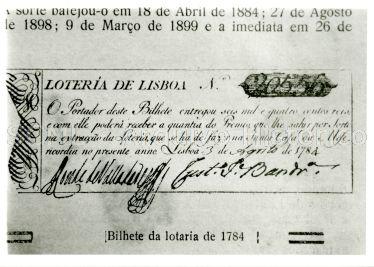 A sorte bafejou-o em 18 de Abril de 1884; 27 de Agosto
de 1898; 9 de Março de 1899 e a imediata em 26 de
LOTERÍA DE LISBOA N.º 20556
O Portador deste Bilhete entregou seis mil e quatro centos reis
e com elle poderá receber a quantia do Premio, que lhe sahir por sorte
na extracção da Loteria, que se ha de fazer na Santa Casa da Mise
ricordia no presente anno. Lisboa 3 de Agosto de 1784
[Bilhete da lotaria de 1784]